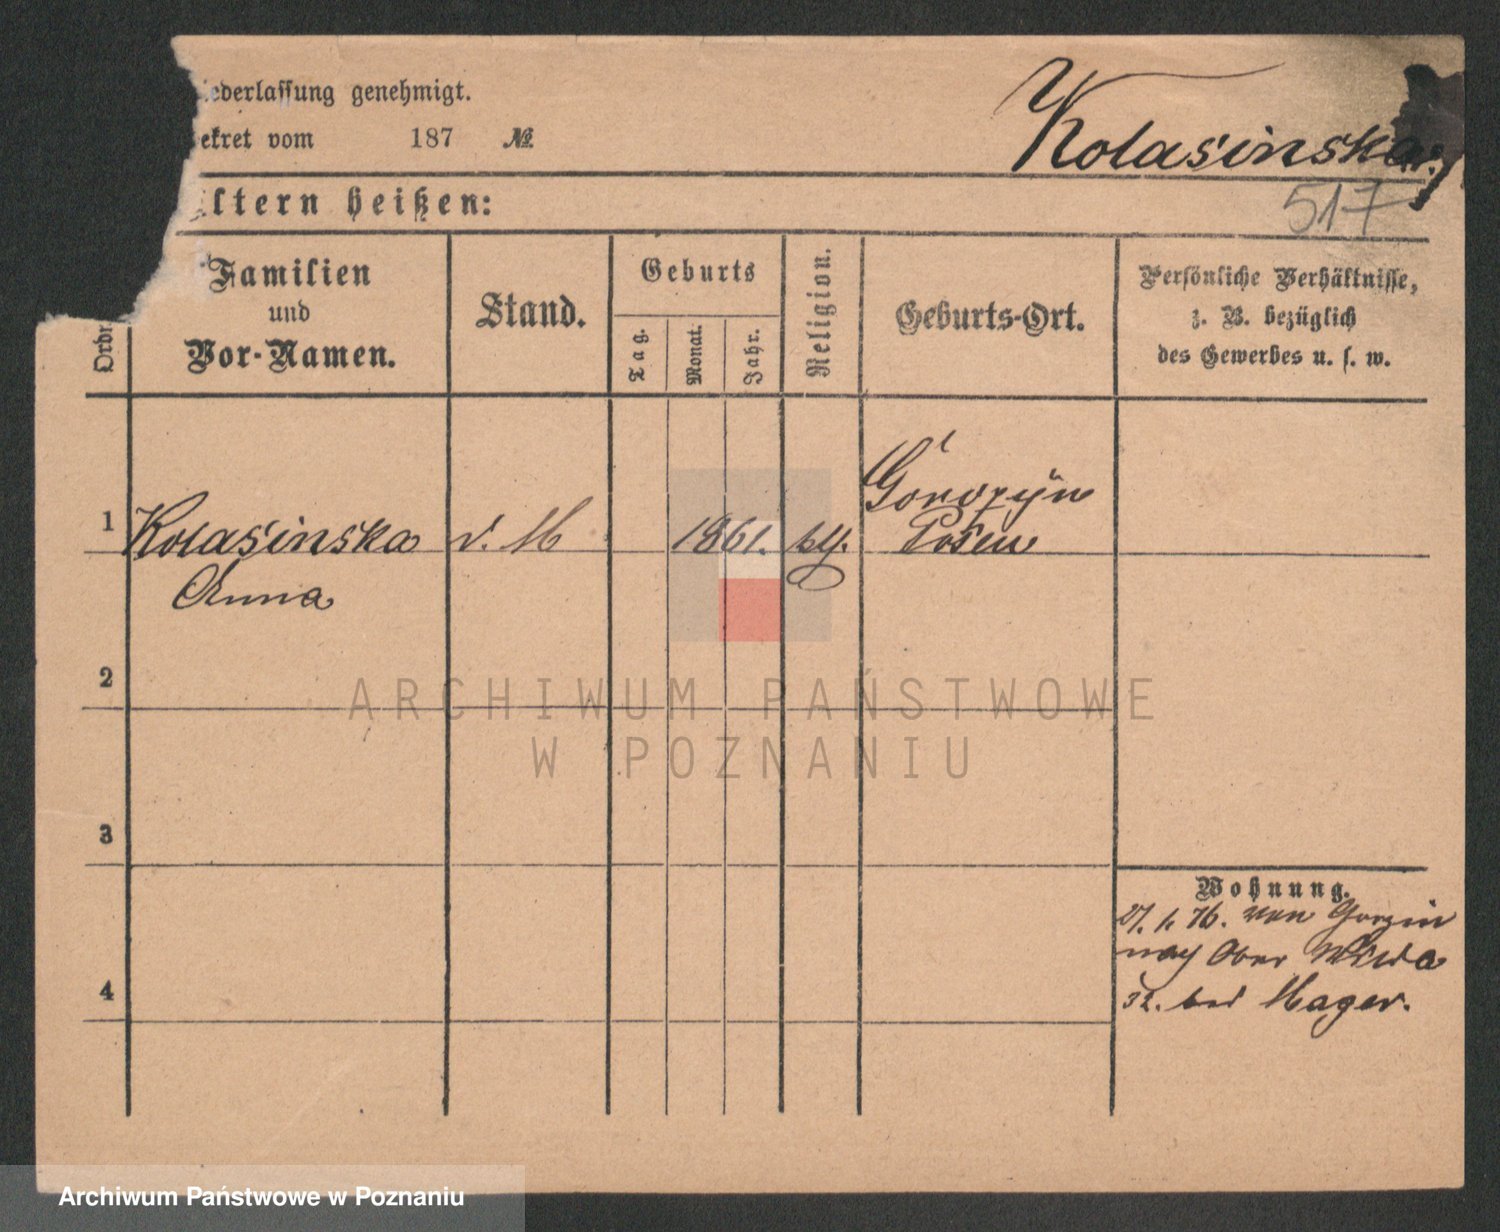 iederlassung genehmigt.
ekret vom 187 №
Kolasinska
517
ltern heißen:
Ordn
Familien
und
Vor-Namen.
Stand.
Geburts
Tag.
Monat.
Jahr.
Religion.
Geburts-Ort.
Persönliche Verhältnisse,
z. B. bezüglich
des Gewerbes u. s. w.
1
Kolasinska
Anna
d. M
1861.
kth.
Posen
2
ARCHIWUM PAŃSTWOWE
W POZNANIU
3
Wohnung.
27. 1. 76. von Gorzin
nach Ober Wilda
32. bei Hager.
4
Archiwum Państwowe w Poznaniu